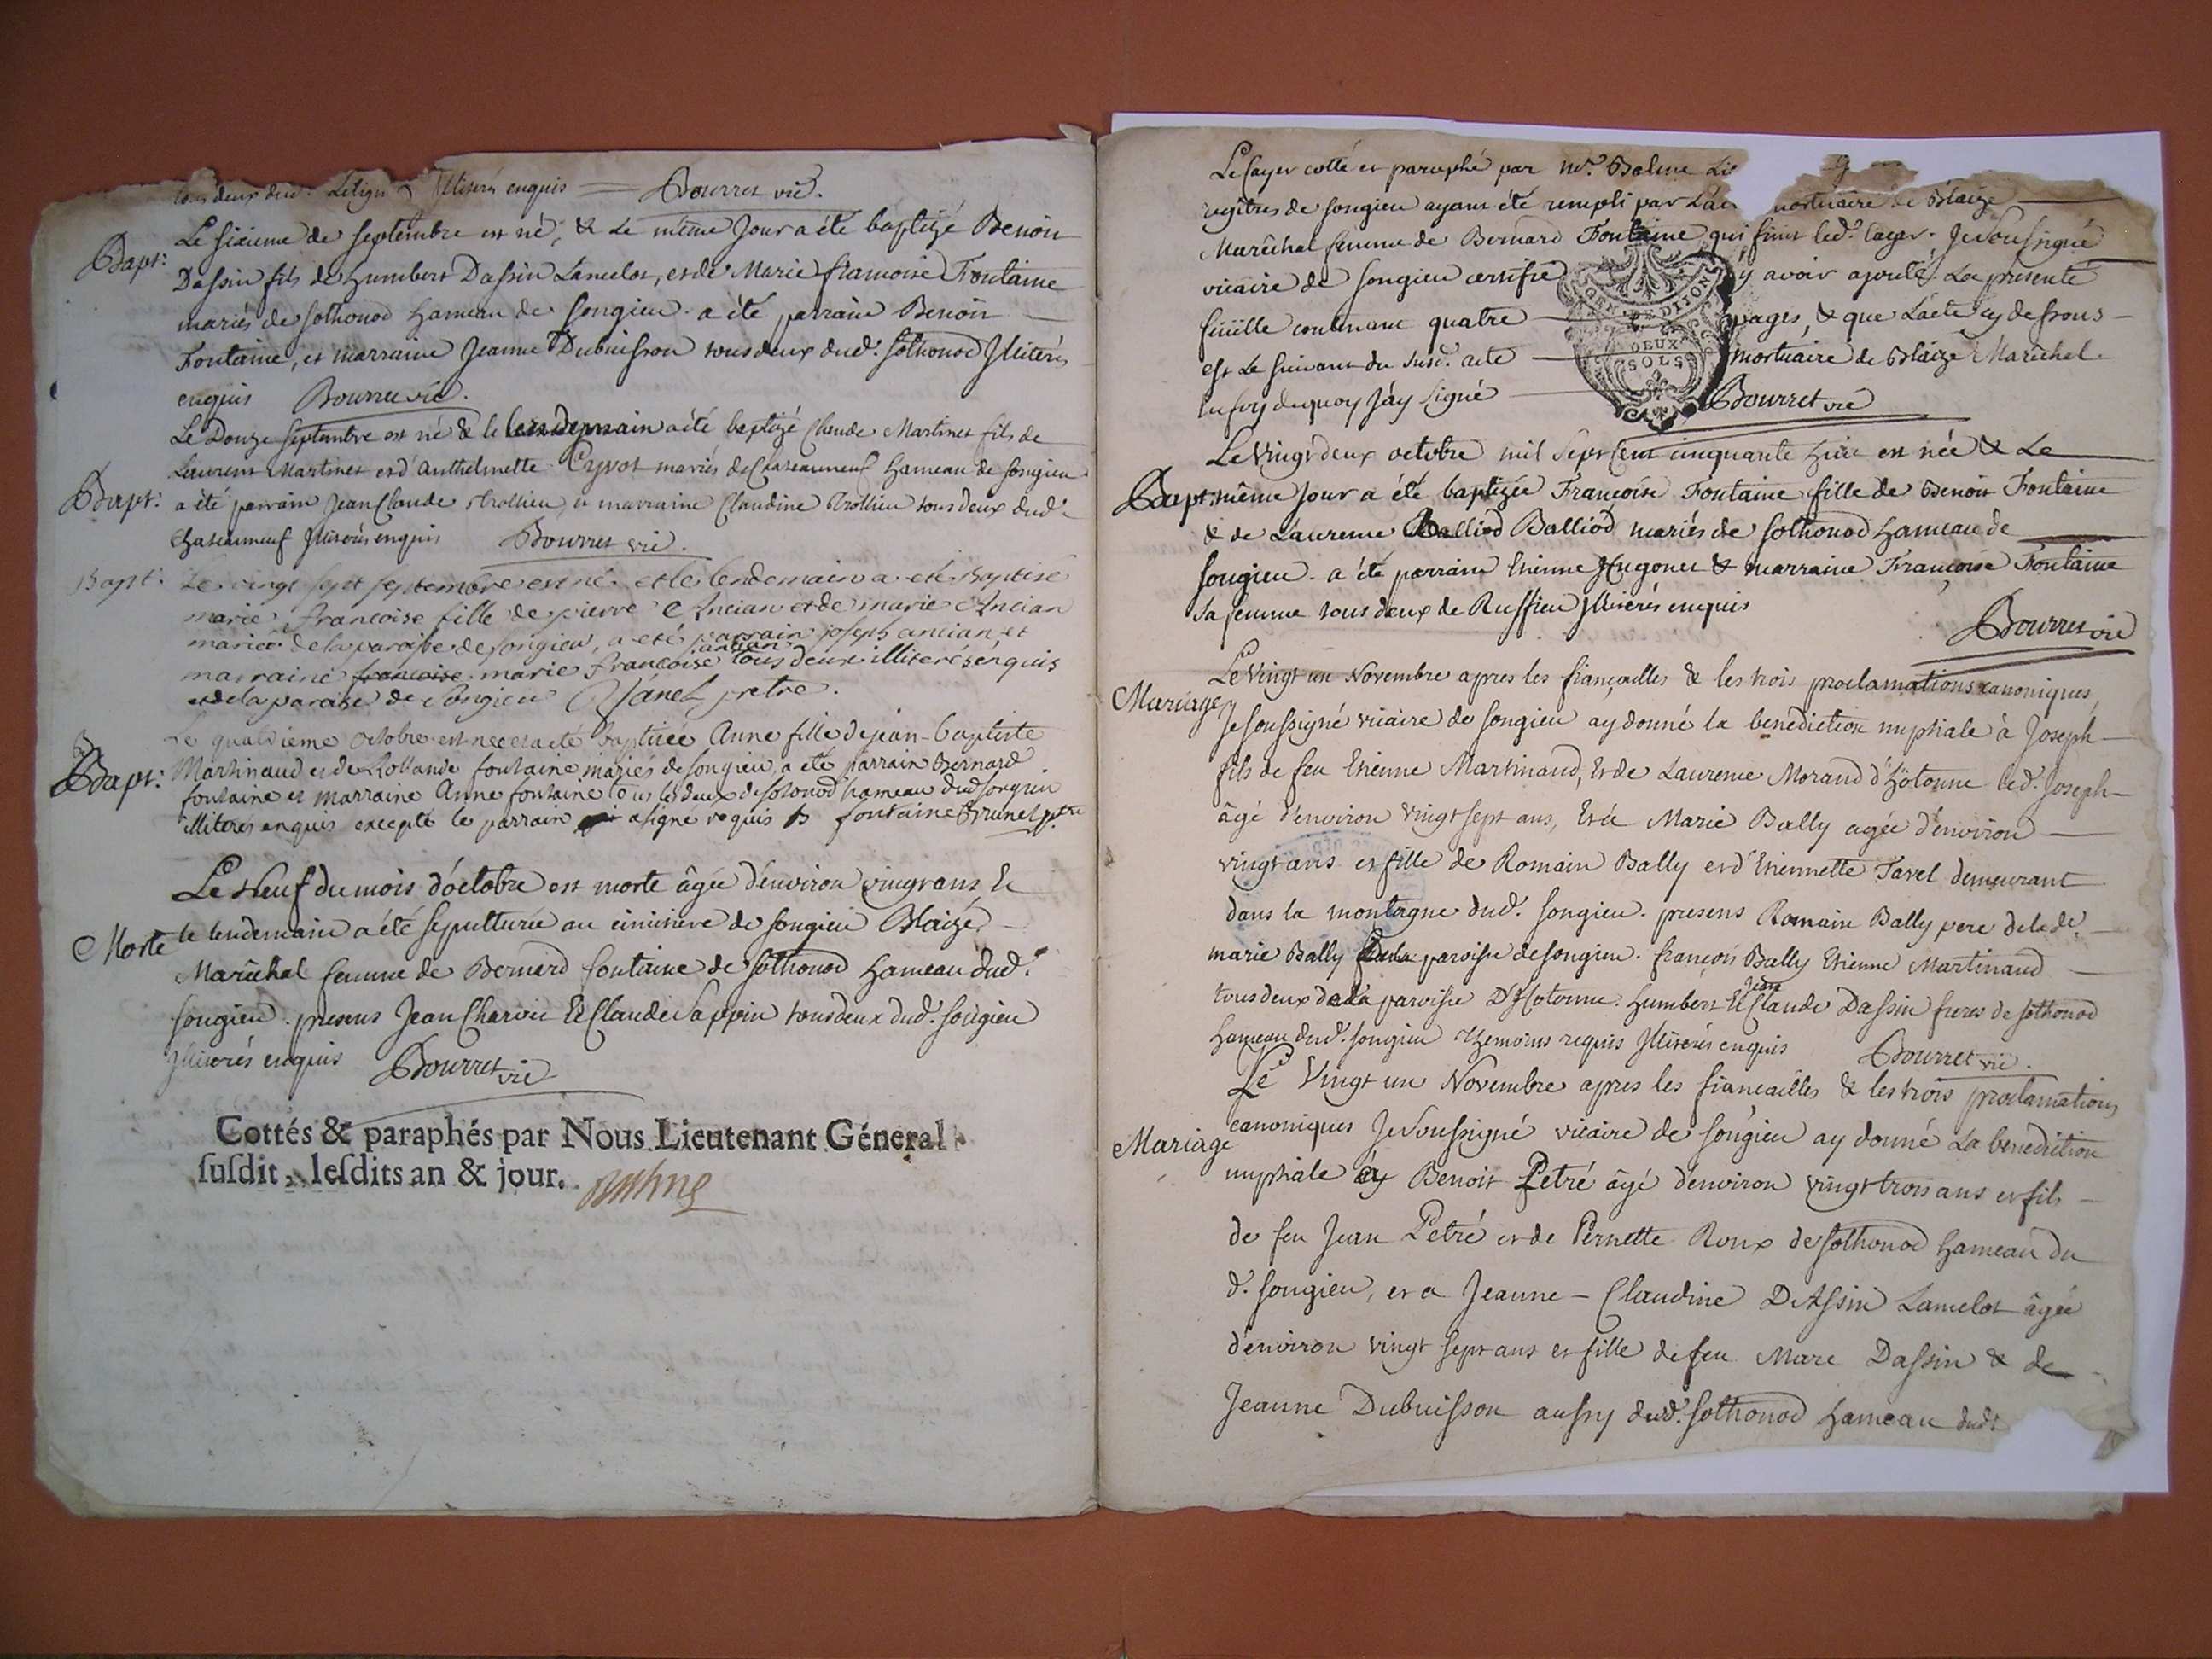 tous deux dud. Illiterés enquis Bourret vic.
Bapt: Le sixieme de septembre est né, & le même Jour a été baptizé Benoit
Dassin fils de humbert Dassin Lancelot, et de Marie francoise Fontaine
mariés de sothonod hameau de songieu. a été parrain Benoit
Fontaine, et marraine Jeanne Dubuisson tous deux dud. Sothonod Jlliterés
enquis Bourret vic.
Le Douze septembre est né & le lendemain a été baptizé Claude Martinet fils de
Laurent Martinet et d'Anthelmette mariés de Chateauneuf hameau de songieu
Bapt: a été parrain Jean Claude Trollieu, et marraine Claudine Trollieu tous deux dud.
Chateauneuf Jlliterés enquis Bourret vic.
Bapt: Le vingt sept septembre est né et le lendemain a eté Baptisé
marie francoise fille de pierre Ancian et de marie Ancian
mariés de la paroisse de songieu, a eté parrain joseph ancian et
ancian
marraine francoise marie francoise tous deux illiterés enquis
et de la paroise de songieu Janet pretre.
le quatrieme octobre est née et a eté baptisée Anne fille de jean-baptiste
Bapt: Martinaud et de Rollande fontaine mariés de songieu, a eté parrain Bernard
fontaine et marraine Anne fontaine tous les deux de solonod hameau dud songieu
illiterés enquis excepté le parrain qui a signé requis B fontaine Brunet ptre
Le Neuf du mois d'octobre est morte âgée d'environ vingt ans Et
Morte le lendemain a été sepulturée au cimitiere de songieu Blaize
Marêchal femme de Bernard fontaine de sothonod hameau dud.
songieu. presens Jean Charvie Et Claude Sappin tous deux dud. songieu
Jlliterés enquis Bourret vic
Cottés & paraphés par Nous Lieutenant Géneral
ſuſdit, leſdits an & jour.
Le Cayer cotté et paraphé par Mr. Balme
regîtres de songieu ayant été rempli par L'ac mortuaire de Blaize
Marêchal femme de Bernard Fontaine qui finit led. cayer. Je soussigné
vicaire de songieu certifie y avoir ajouté. La presente
feüille contenant quatre pages, & que L'acte cy dessous
est le suivant du susd. acte mortuaire de Blaize Marêchal.
En foy de quoy J'ay signé Bourret vic
DEUX
SOLS
Le Vingt deux octobre mil sept Cent cinquante huit est née & Le
Bapt: même jour a été baptizée Françoise Fontaine fille de Benoit Fontaine
& de Laurence Balliod Balliod mariés de sothonod hameau de
songieu. a été parrain Etienne Hugonet & marraine Françoise Fontaine
sa femme tous deux de Ruffieu Jlliterés enquis
Bourret vic
Le Vingt un Novembre apres les fiançailles & les trois proclamations canoniques,
Mariage Je soussigné vicaire de songieu ay donné la benediction nuptiale à Joseph
fils de feu Etienne Martinaud, Et de Laurence Morand d'hotonne led. Joseph
âgé d'environ vingt sept ans, Et à Marie Bally agée d'environ
vingt ans et fille de Romain Bally et d'Etiennette Tavel demeurant
dans la montagne dud. songieu. presens Romain Bally pere de lad.
marie Bally de la paroisse de songieu. françois Bally Etienne Martinaud
Jean
tous deux de la paroisse D'Hotonne. humbert Et Claude Dassin freres de sothonod
hameau dud. songieu themoins requis Jlliterés enquis Bourret vic.
Le Vingt un Novembre apres les fiancailles & les trois proclamations
canoniques Je soussigné vicaire de songieu ay donné La benediction
Mariage nuptiale à Benoit Petré âgé d'environ vingt trois ans et fils
de feu Jean Petré et de Pernette Roux de sothonod hameau du
d. songieu, et a Jeanne-Claudine DAssin Lancelot âgée
d'environ vingt sept ans et fille de feu Marc Dassin & de
Jeanne Dubuisson aussy dud. sothonod hameau dud.